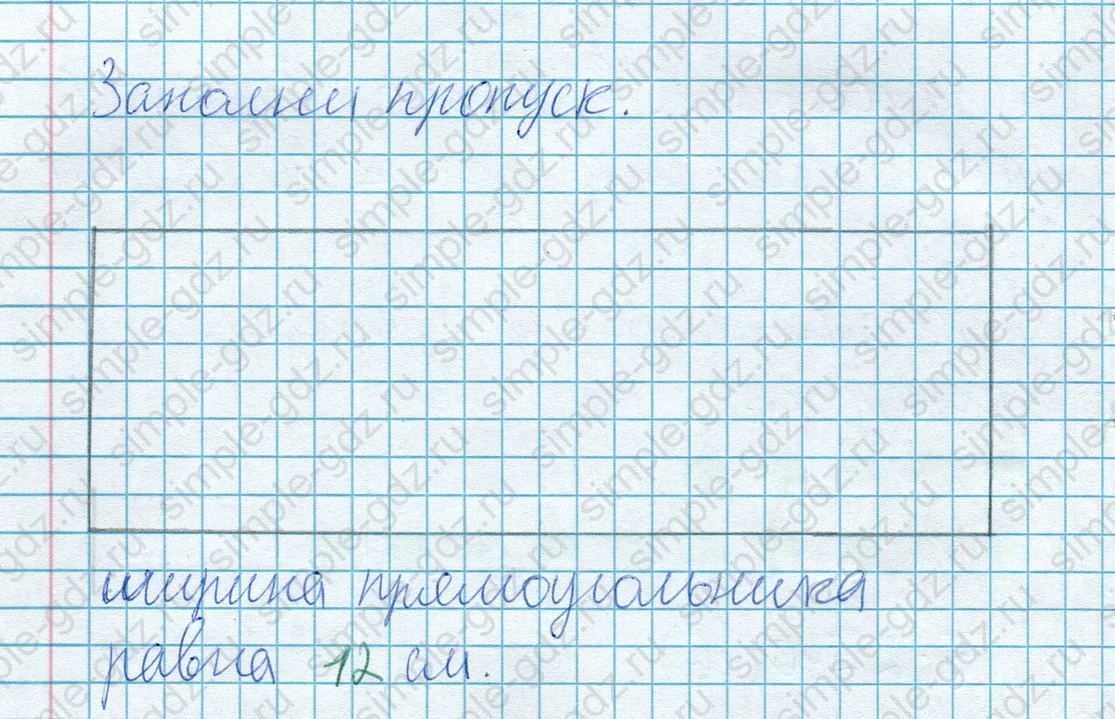 Заполни пропуск.
ширина прямоугольника
равна 12 см.
simple-gdz.ru